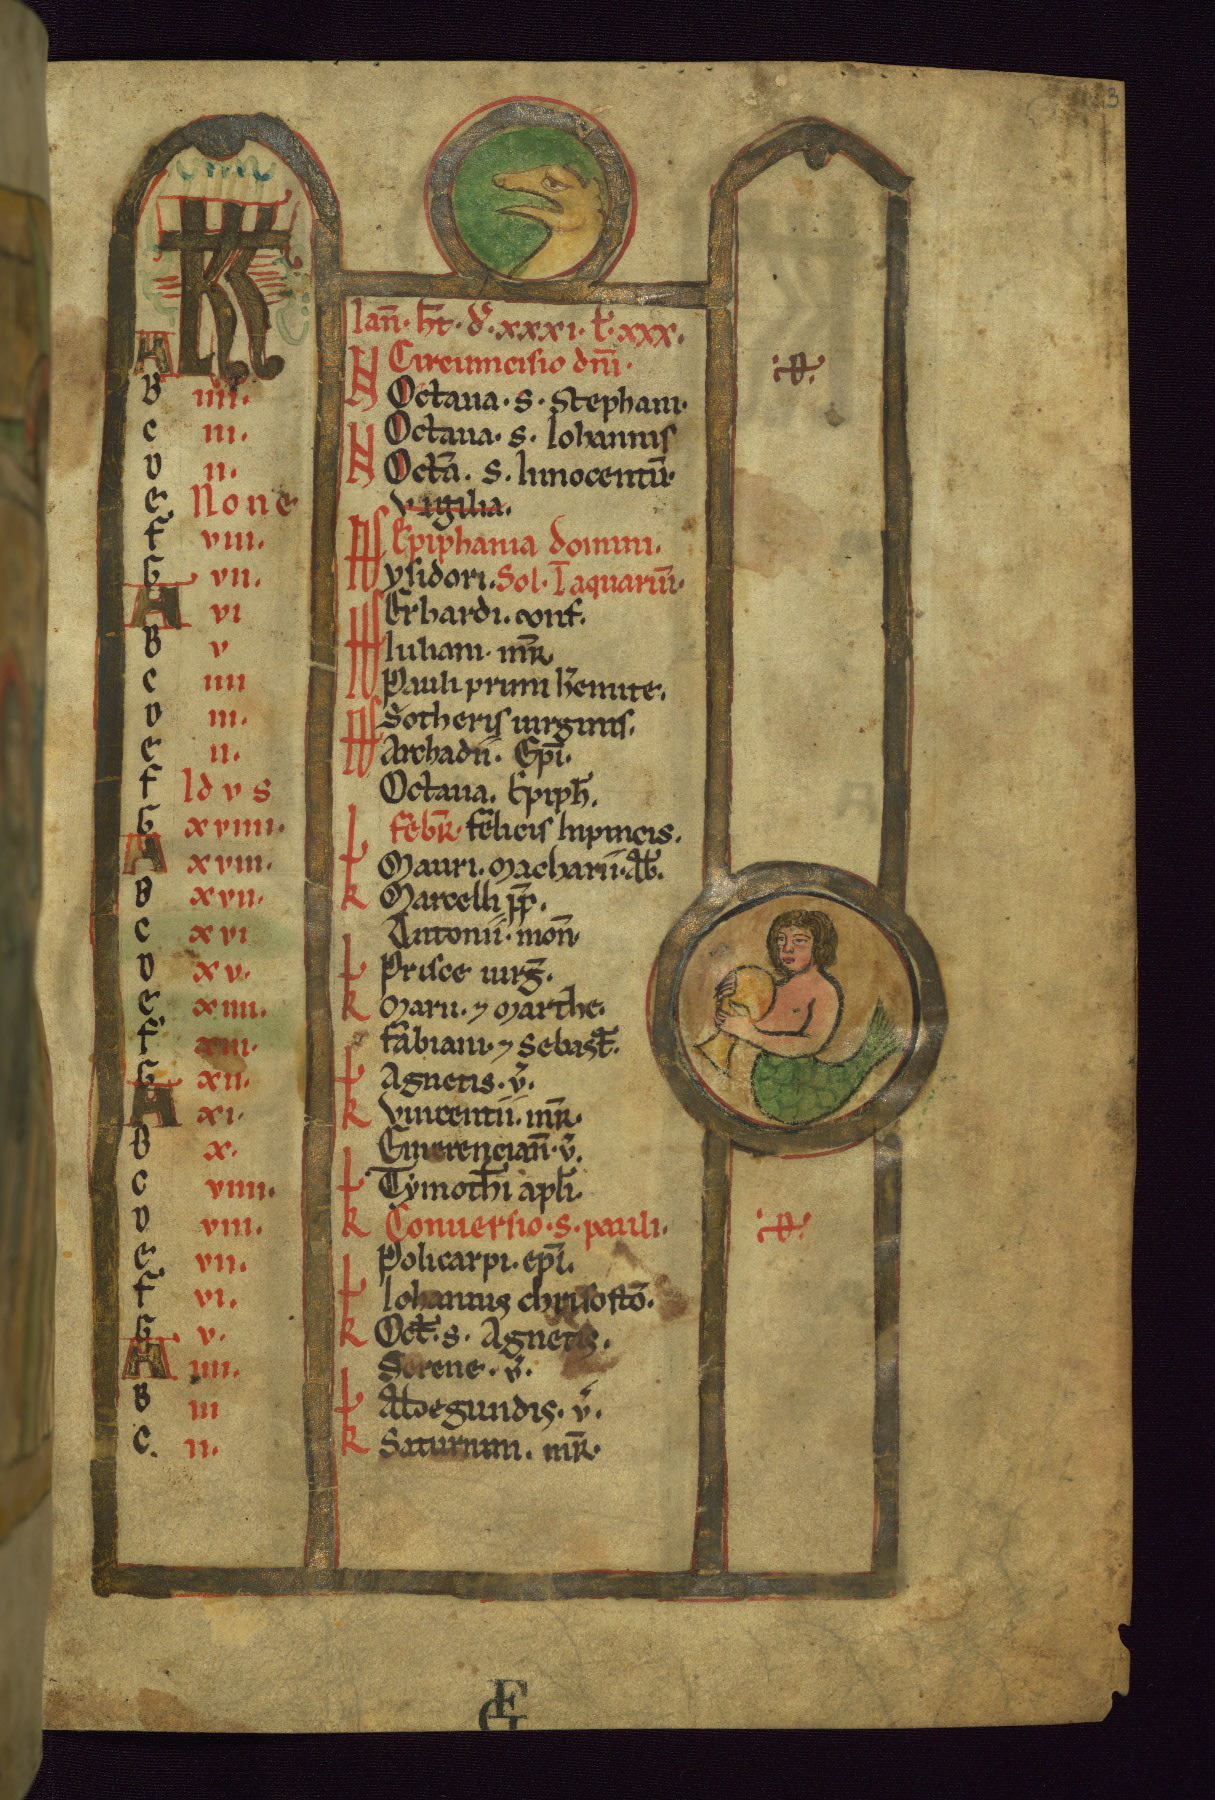 3
KL
Ian̄. h̄t. d̄. xxxi. t̄. xxx.
A N Circumcisio dn̄i.
B iiii. N Octaua. s. Stephani.
c iii. N Octaua. s. Iohannis
D ii. N Octā. s. Innocentū.
e None vigilia.
f viii. N Epiphania domini.
G vii. N ysidori. Sol. I aquariū.
A vi Erhardi. conf.
B v Iuliani. mr̄.
c iiii Pauli primi h̄emite.
D iii. Sotheris uirginis.
e ii. Archadii. Ep̄i.
f Idvs Octaua. Epiph̄.
G xviiii. febr̄. felicis Inpincis.
A xviii. Mauri. Macharii. Ab̄.
B xvii. k Marcelli pp̄.
c xvi Antonii. mon̄.
D xv. Prisce uirḡ.
e xiiii. k Marii. ⁊ Marthe.
f xiii. fabiani. ⁊ Sebast̄.
G xii. Agnetis. v̄.
A xi. k Vincentii. mr̄.
B x. Emerencian̄. v̄.
c viiii. Tymoth̄i apl̄i.
D viii. k Conuersio. s. pauli.
e vii. Policarpi. ep̄i.
f vi. Iohannis chrisostō.
G v. k Oct̄. s. Agnetis.
A iiii. Serene. v̄.
B iii Aldegundis. v̄.
c. ii. k Saturnini. mr̄.